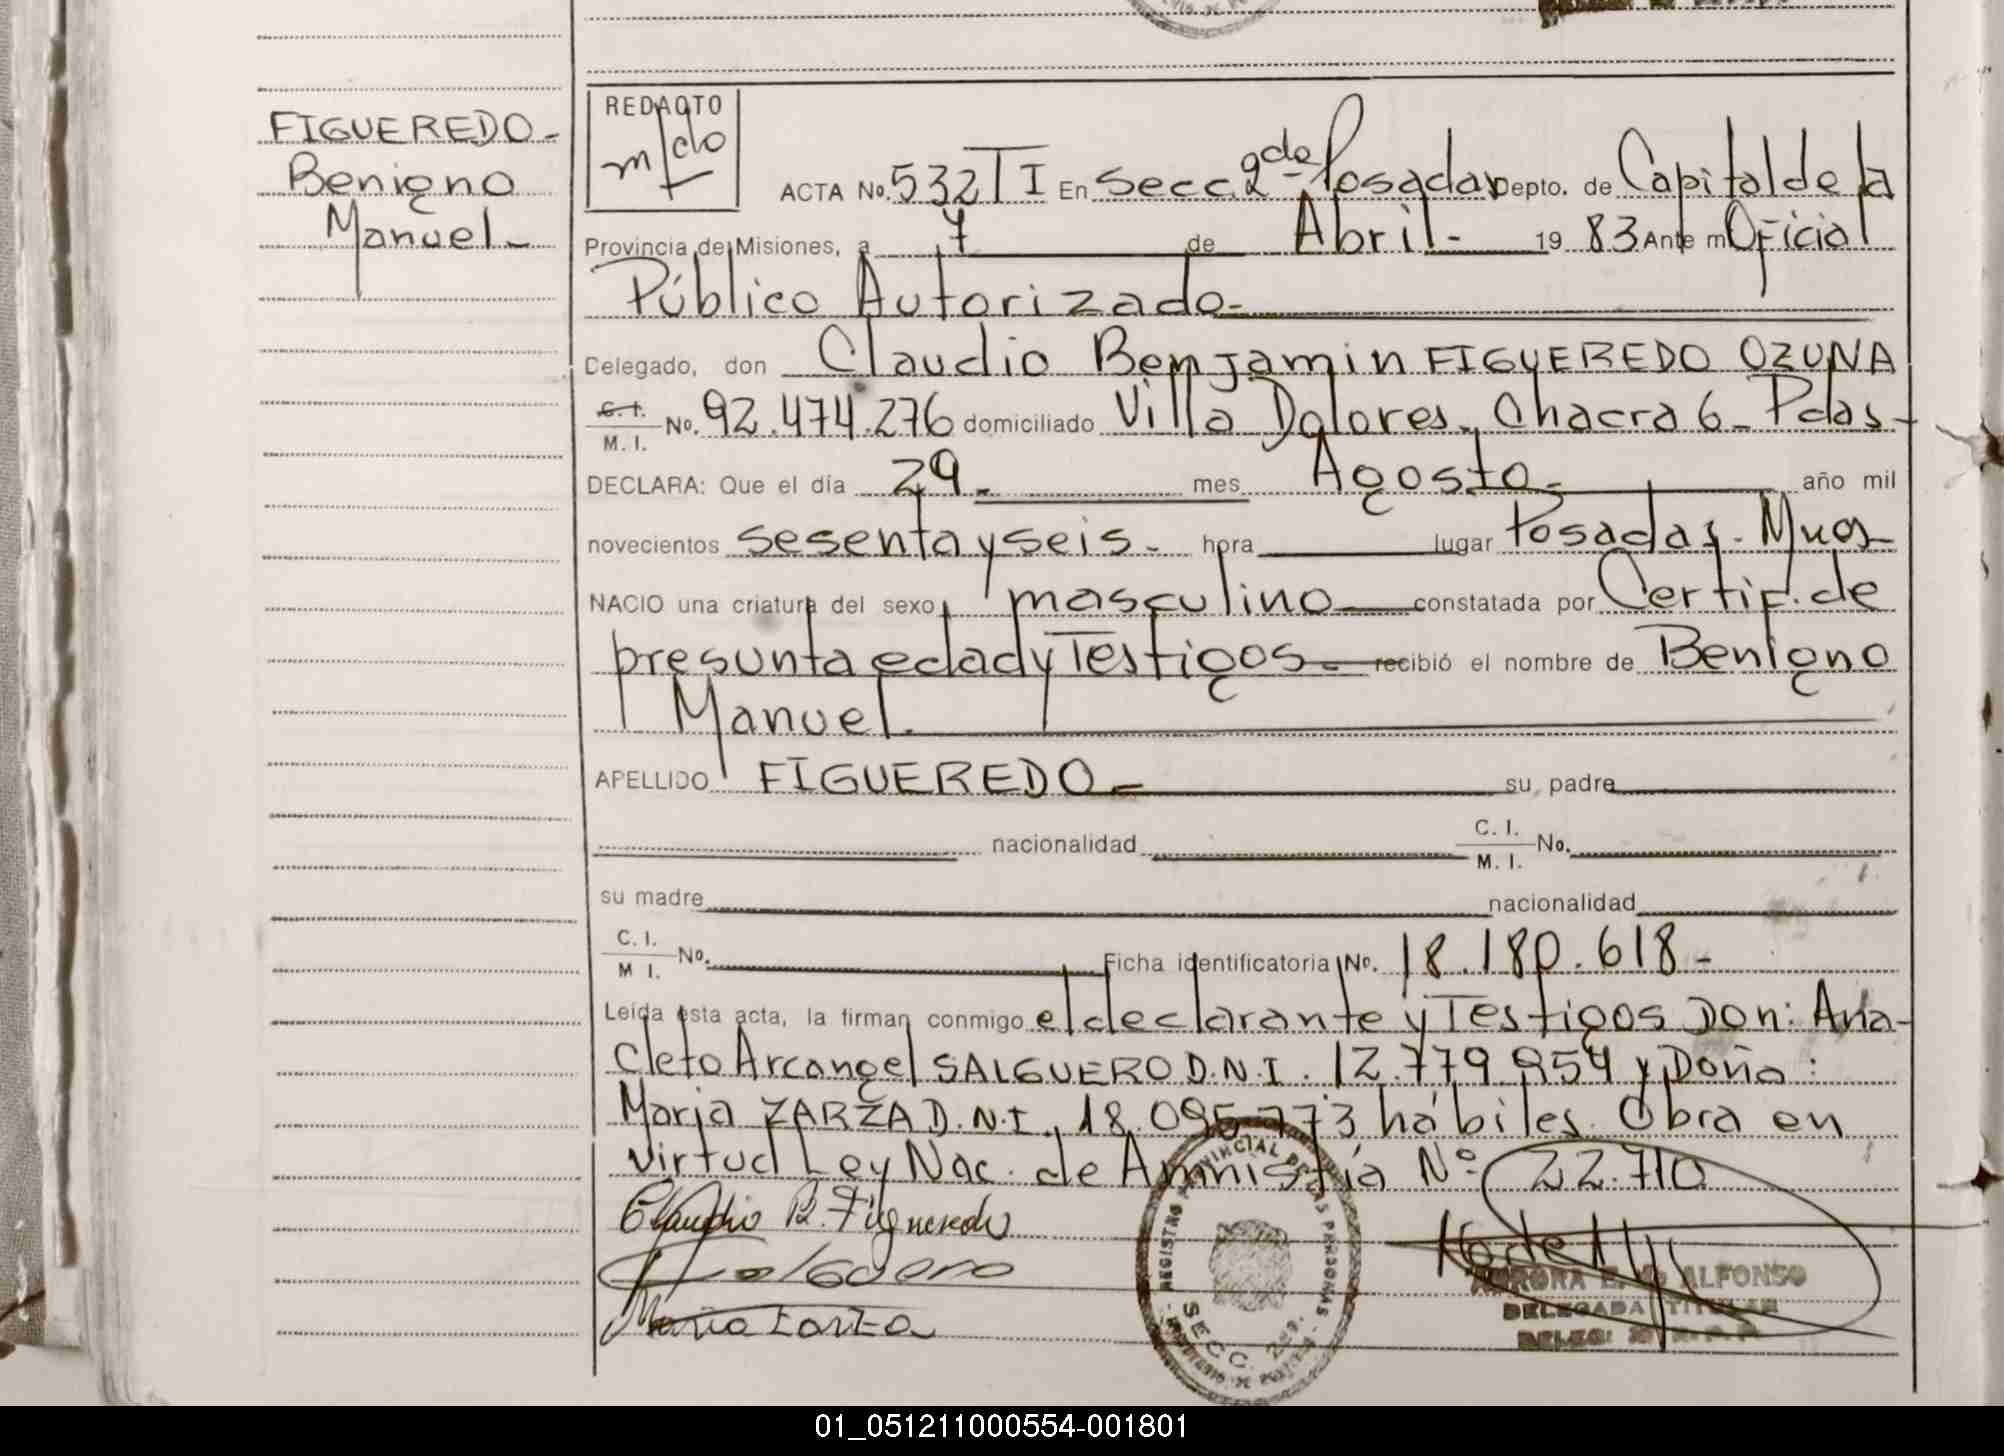 FIGUEREDO-
Benigno
Manuel-
REDACTO
ACTA No. 532 T I En Secc. 2da Posadas Depto. de Capital de la
Provincia de Misiones, a 7 de Abril- 19 83 Ante mi Oficial
Público Autorizado-
Delegado, don Claudio Benjamin FIGUEREDO OZUNA
C.I. M.I. No. 92.474.276 domiciliado Villa Dolores- Chacra 6- Pdas-
DECLARA: Que el día 29- mes Agosto- año mil
novecientos sesenta y seis- hora lugar Posadas. Mnes
NACIO una criatura del sexo masculino constatada por Certif. de
presunta edad y Testigos- recibió el nombre de Benigno
Manuel.
APELLIDO FIGUEREDO- su padre
nacionalidad C. I. M. I. No.
su madre nacionalidad
C. I. M I. No. Ficha identificatoria No. 18.180.618-
Leída esta acta, la firman conmigo el declarante y Testigos Don: Ana-
cleto Arcangel SALGUERO D.N.I. 12.779.954 y Doña:
Maria ZARZA D.N.I. 18.095.773 hábiles. Obra en
virtud Ley Nac. de Amnistía Nº 22.710
Claudio B. Figueredo
Maria Zarza
REGISTRO PROVINCIAL DE LAS PERSONAS
SECC. 2da.
AURORA E. D. ALFONSO
DELEGADA TITULAR
01_051211000554-001801